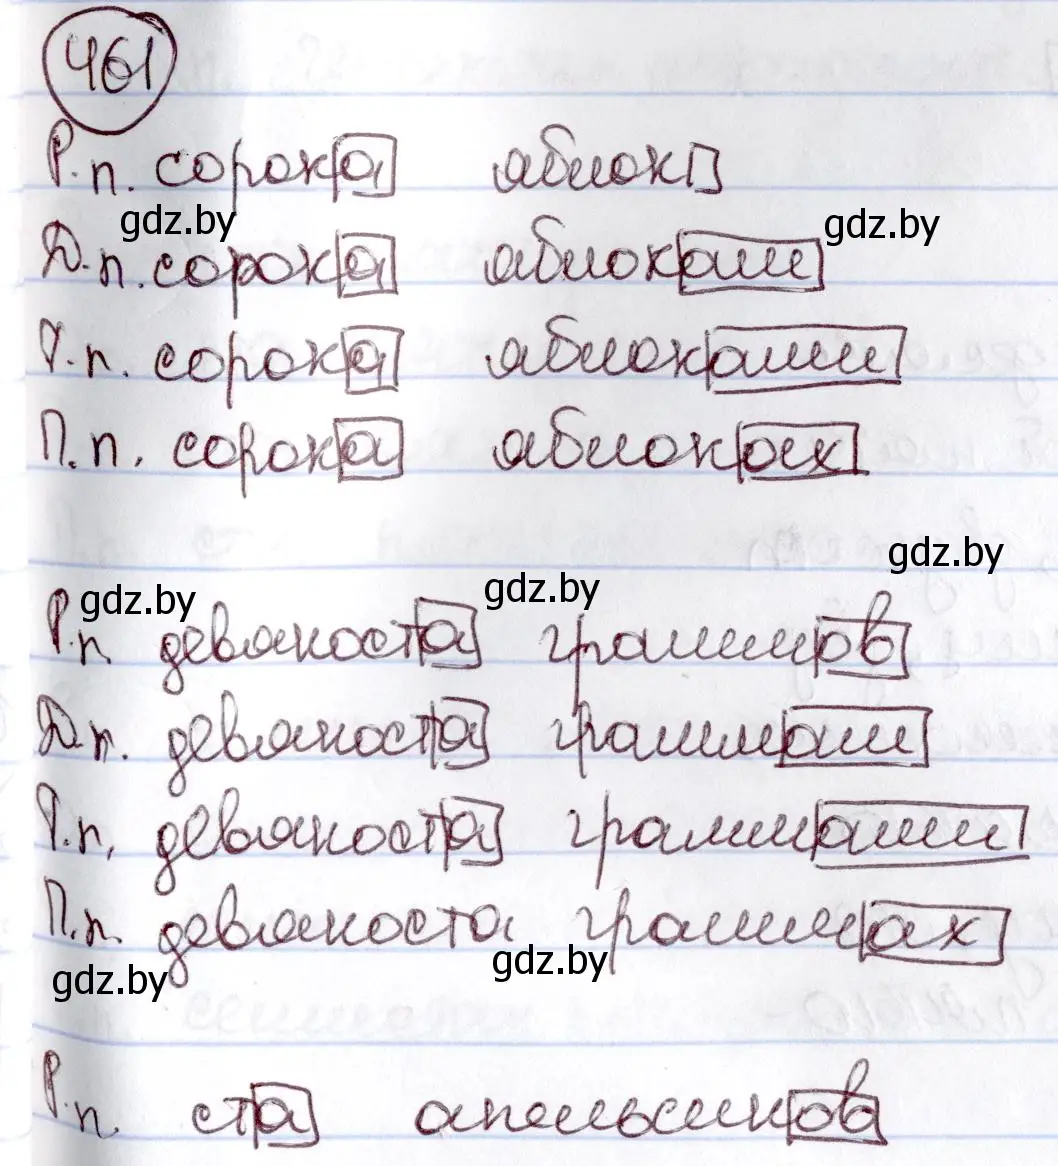 461
Р.п. сорока яблок
gdz.by gdz.by
Д.п. сорока яблокам
Т.п. сорока яблоками
П.п. сорока яблоках
gdz.by
gdz.by gdz.by
Р.п девяноста граммов
Д.п. девяноста граммам
Т.п, девяноста граммами
П.п. девяноста граммах
gdz.by gdz.by
Р.п. ста апельсинов